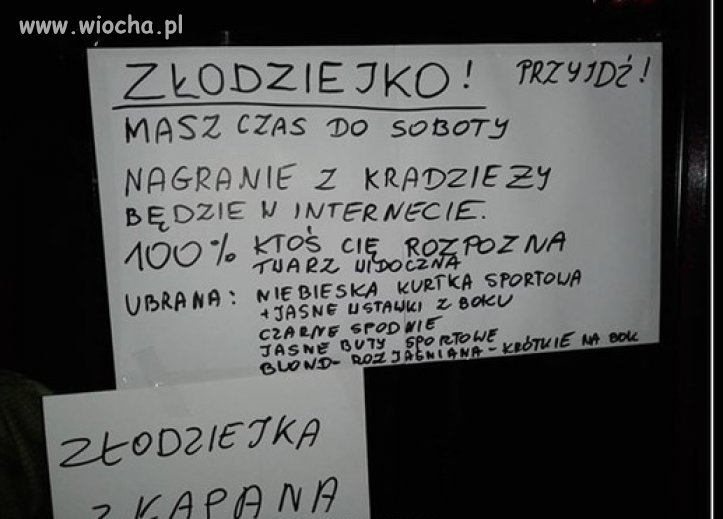 www.wiocha.pl
ZŁODZIEJKO! PRZYJDŹ!
MASZ CZAS DO SOBOTY
NAGRANIE Z KRADZIEŻY
BĘDZIE W INTERNECIE.
100% KTOŚ CIĘ ROZPOZNA
TWARZ WIDOCZNA
UBRANA: NIEBIESKA KURTKA SPORTOWA
+JASNE WSTAWKI Z BOKU
CZARNE SPODNIE
JASNE BUTY SPORTOWE
BLOND-ROZJAŚNIANA-KRÓTKIE NA BOK
ZŁODZIEJKA
ZŁAPANA